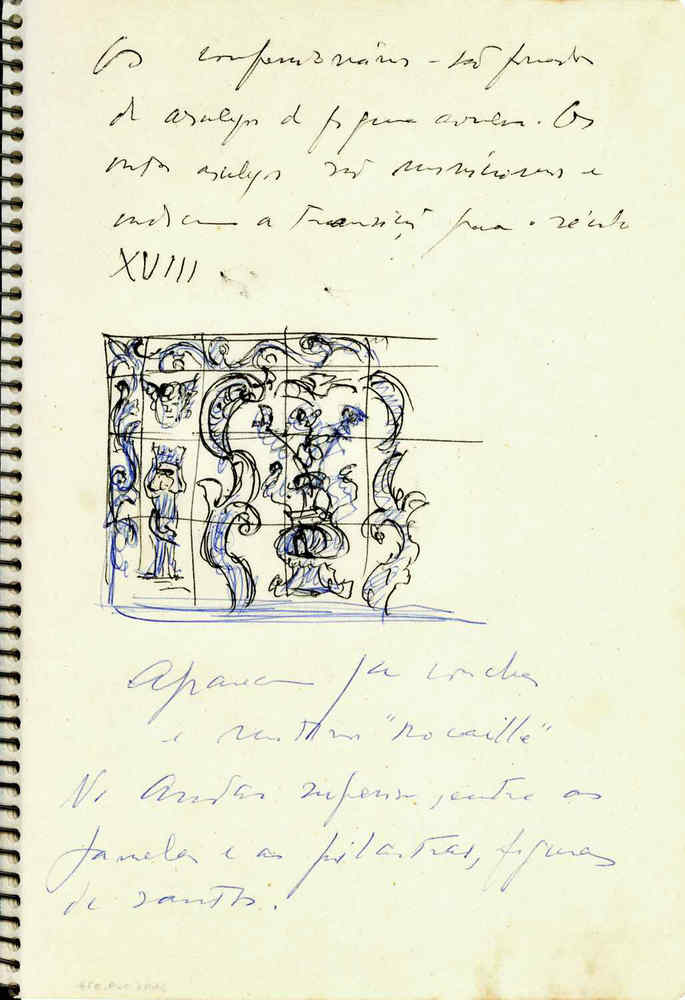 Os confessionários - são forrados
de azulejos de figura avulsa. Os
outros azulejos são
indicam a transição para o século
XVIII
Aparecem já conchas
e motivos "Rocaille"
No Andar superior, entre as
janelas e as pilastras, figuras
de santos.